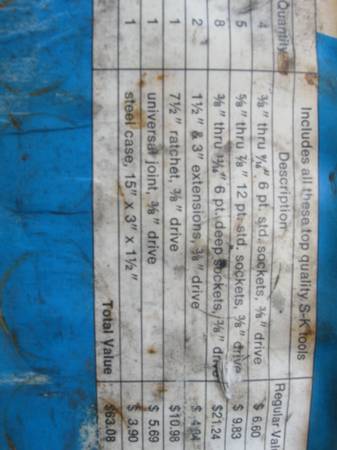 Includes all these top quality S-K tools
Quantity Description Regular Val
4 3/8" thru 9/16" 6 pt. std. sockets, 3/8" drive $ 6.60
5 5/8" thru 7/8" 12 pt. std. sockets, 3/8" drive $ 9.83
8 3/8" thru 13/16" 6 pt. deep sockets, 3/8" drive $21.24
2 1½" & 3" extensions, 3/8" drive $ 4.84
1 7½" ratchet, 3/8" drive $10.98
1 universal joint, 3/8" drive $ 5.69
1 steel case, 15" x 3" x 1½" $ 3.90
Total Value $63.08